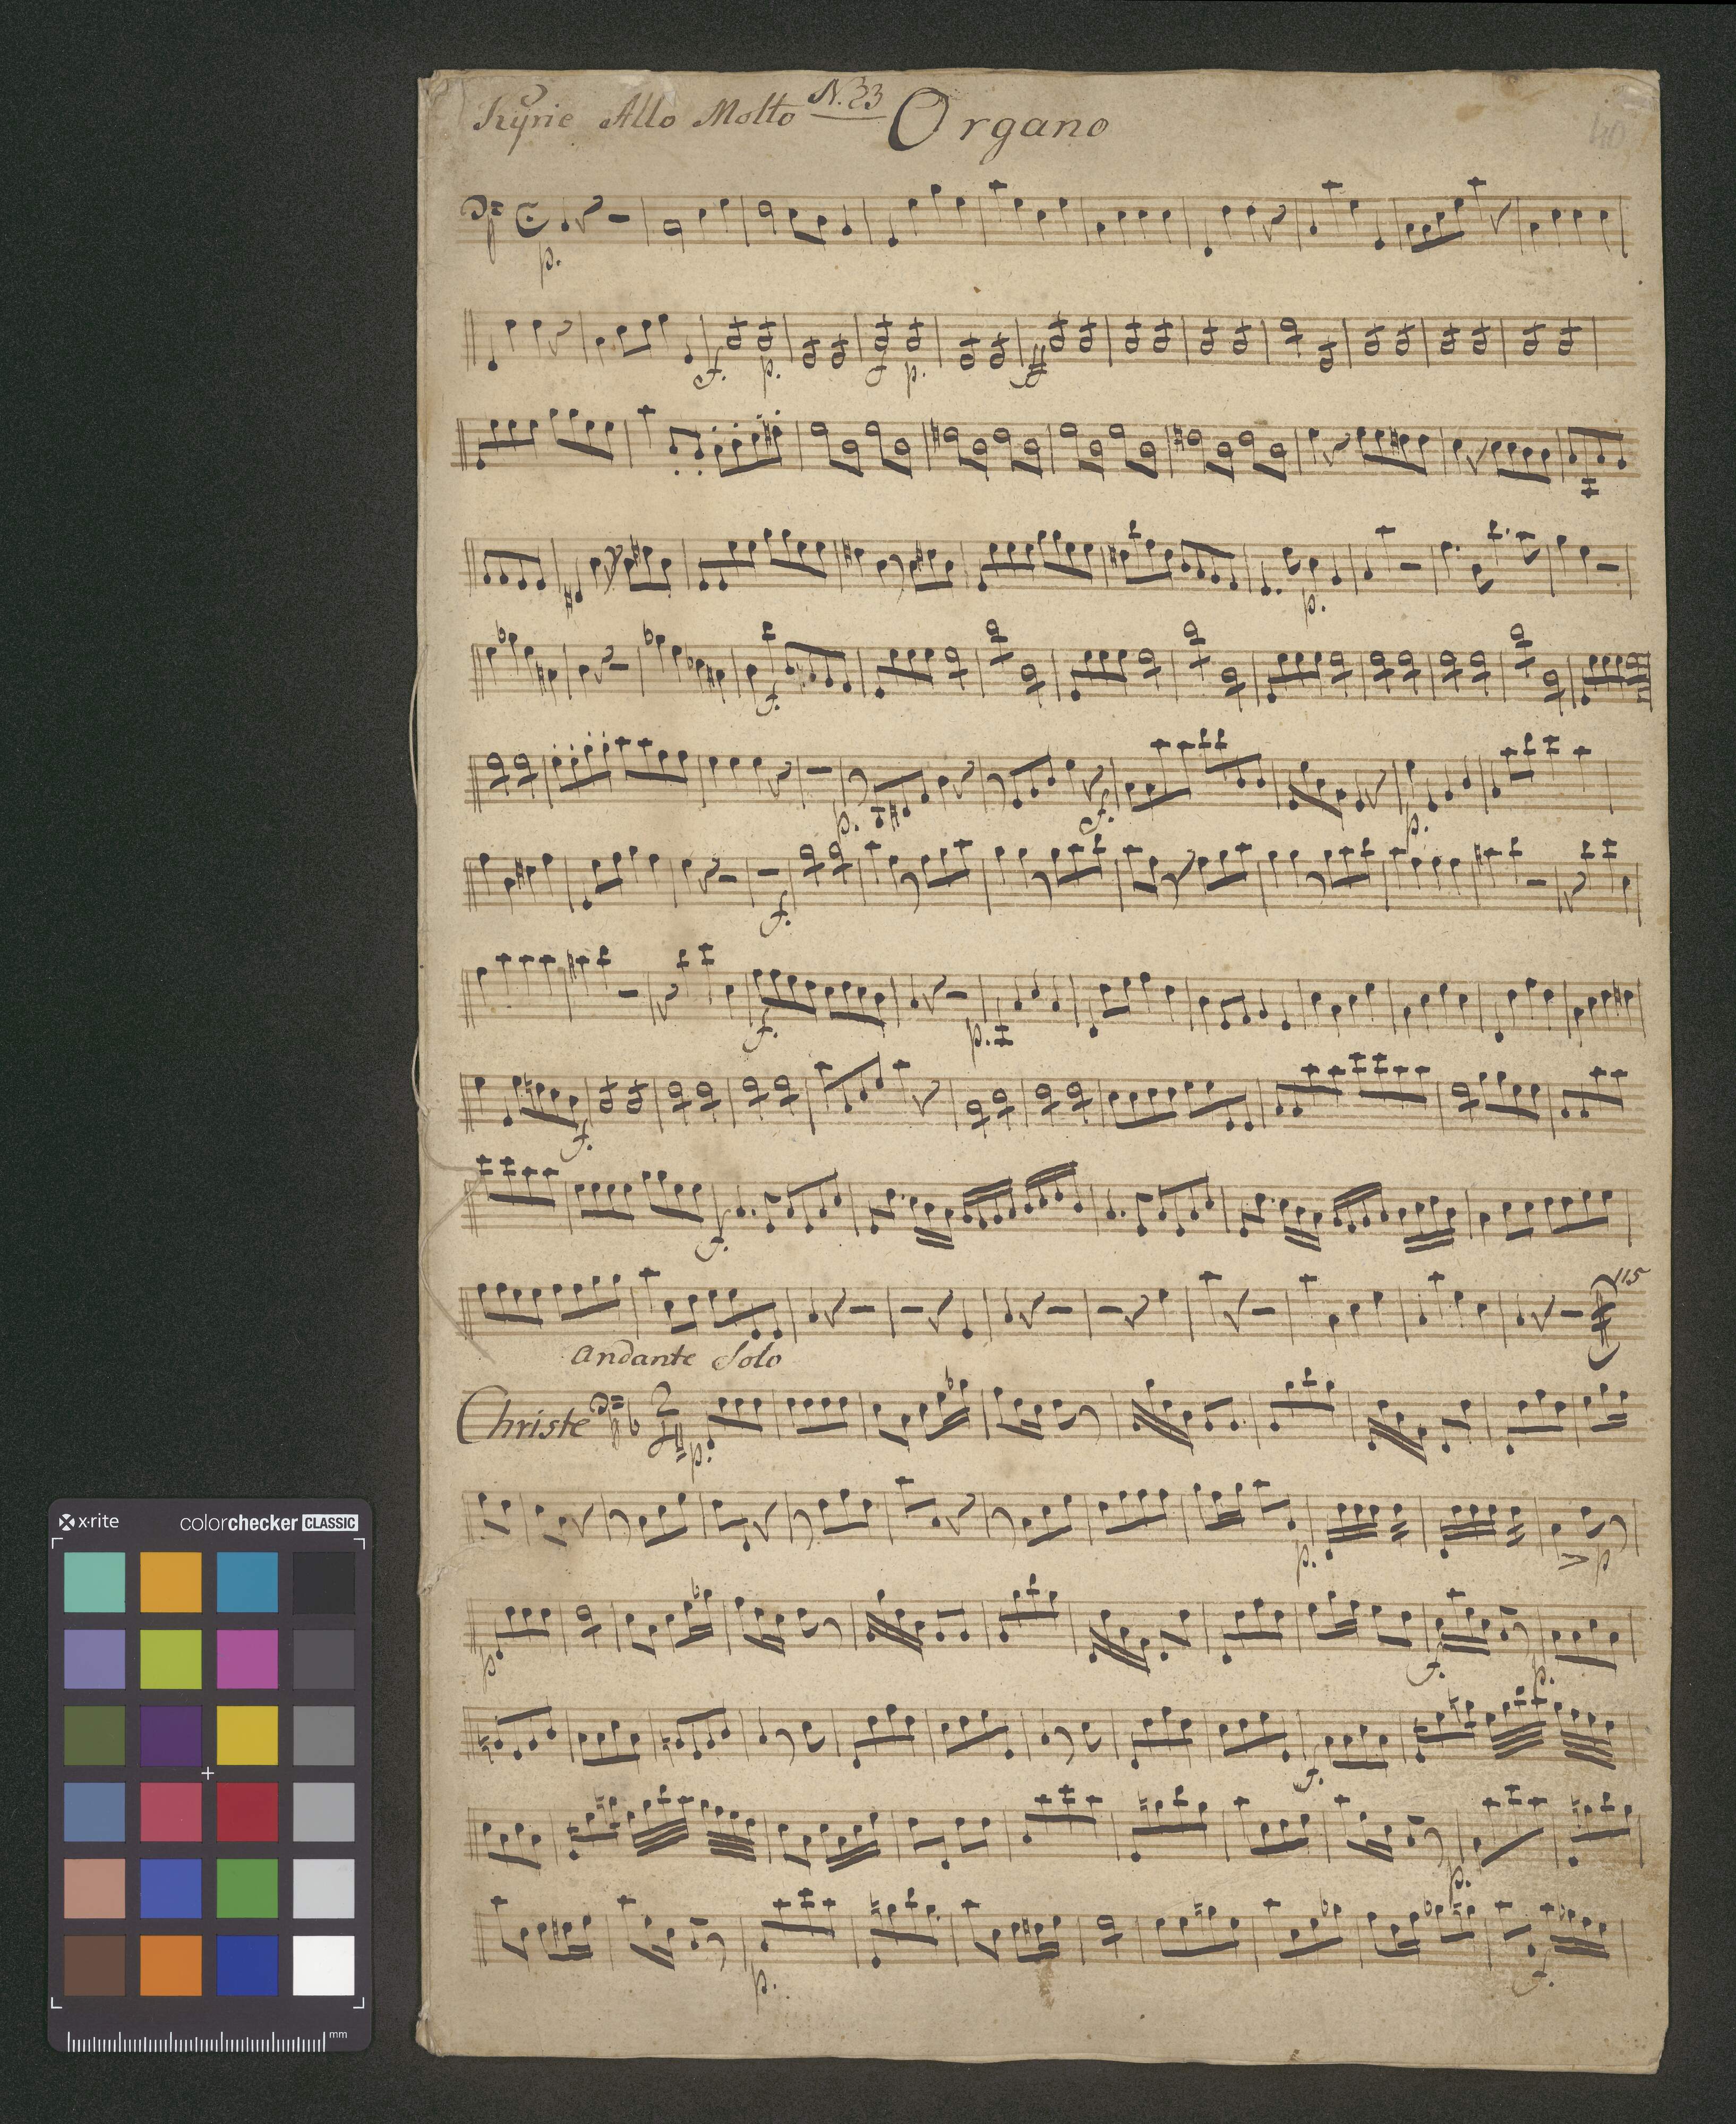 Kyrie Allo Molto N. 23 Organo
40
p.
f. p. f p. ff
p.
f.
p. f. p.
f.
f. p.
f.
f.
115
Andante Solo
Christe 2 4 p.
p. > p
p f. p.
f.
p.
p. f.
x-rite colorchecker CLASSIC
mm